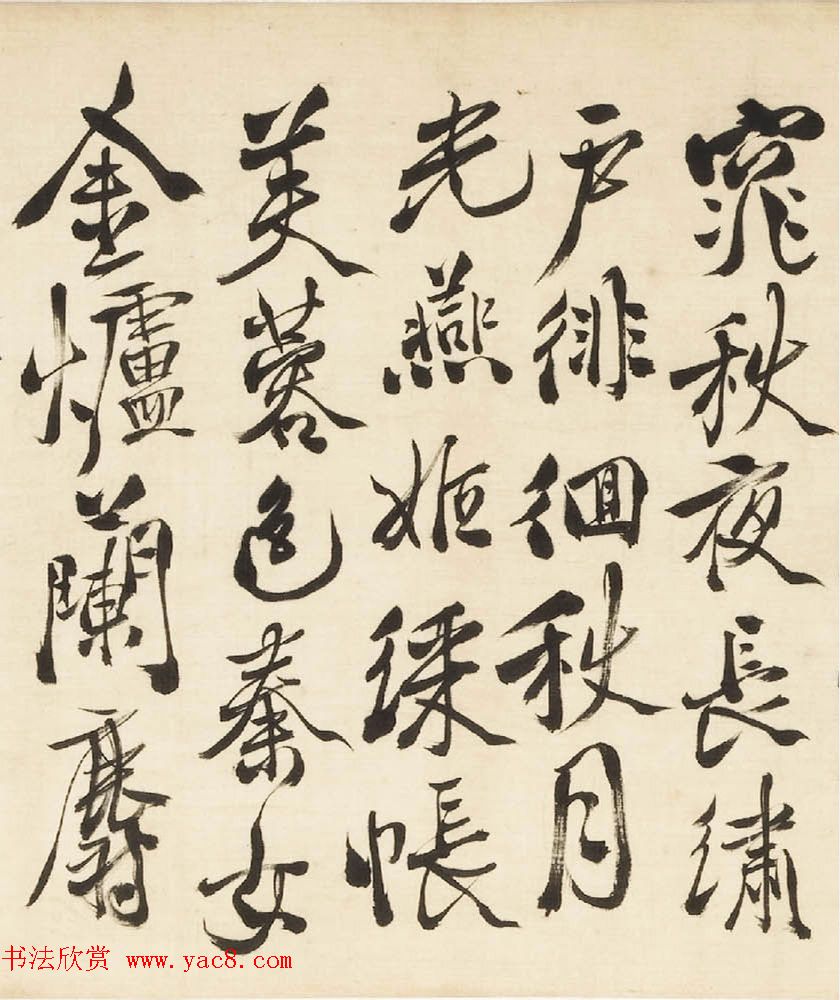 窕秋夜長繡
户徘徊秋月
光燕姬綵帳
芙蓉色秦女
金爐蘭麝
书法欣赏 www.yac8.com